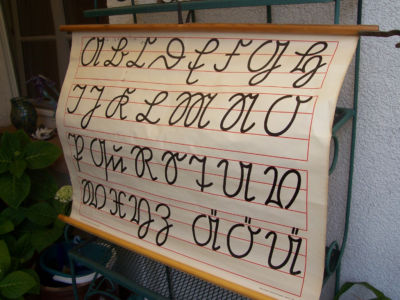 A B C D E F G H
I J K L M N O
P Qu R S T U V
W X Y Z Ä Ö Ü